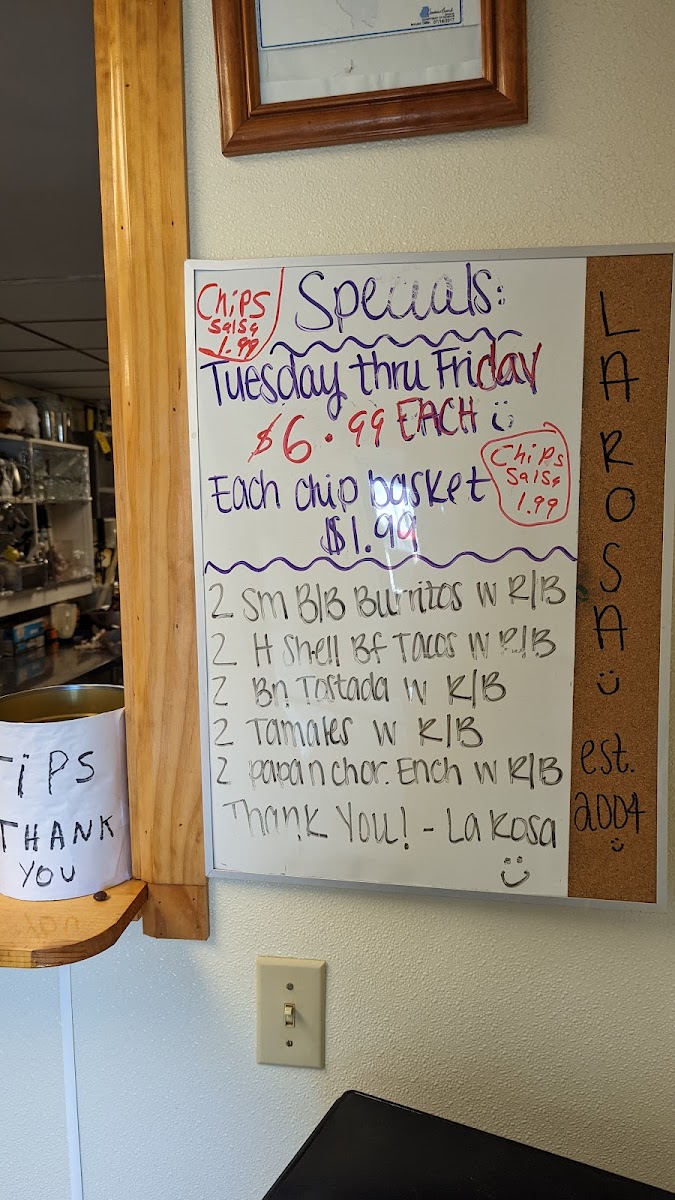 Specials:
Chips
Salsa
1.99
Tuesday thru Friday
$6.99 EACH
Each chip basket
$1.99
Chips
Salsa
1.99
2 Sm B/B Burritos W R/B
2 H Shell Bf Tacos W R/B
2 Bn Tostada W R/B
2 Tamales W R/B
2 papa n chor. Ench W R/B
Thank You! - La Rosa
LA ROSA
est.
2004
TIPS
THANK
YOU